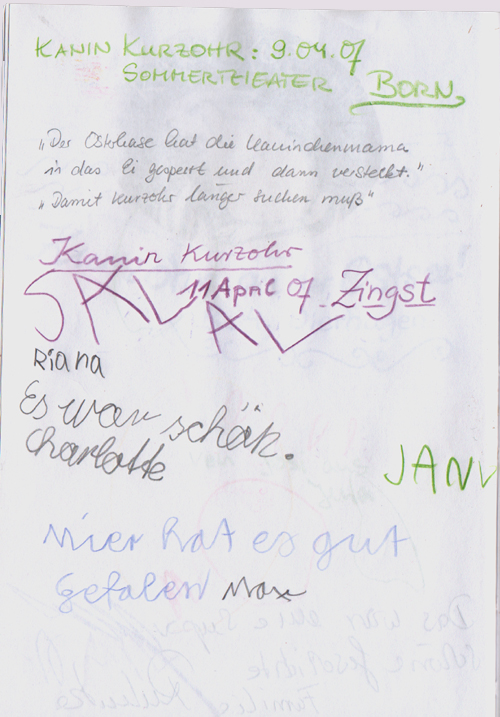 KANIN KURZOHR: 9.04.07
SOMMERTHEATER BORN
„Der Osterhase hat die Kaninchenmama
in das Ei gesperrt und dann versteckt."
„Damit Kurzohr länger suchen muß"
Kanin Kurzohr
11 April 07 Zingst
Riana
Es war schön.
Charlotte
Mier hat es gut
gefalen Max